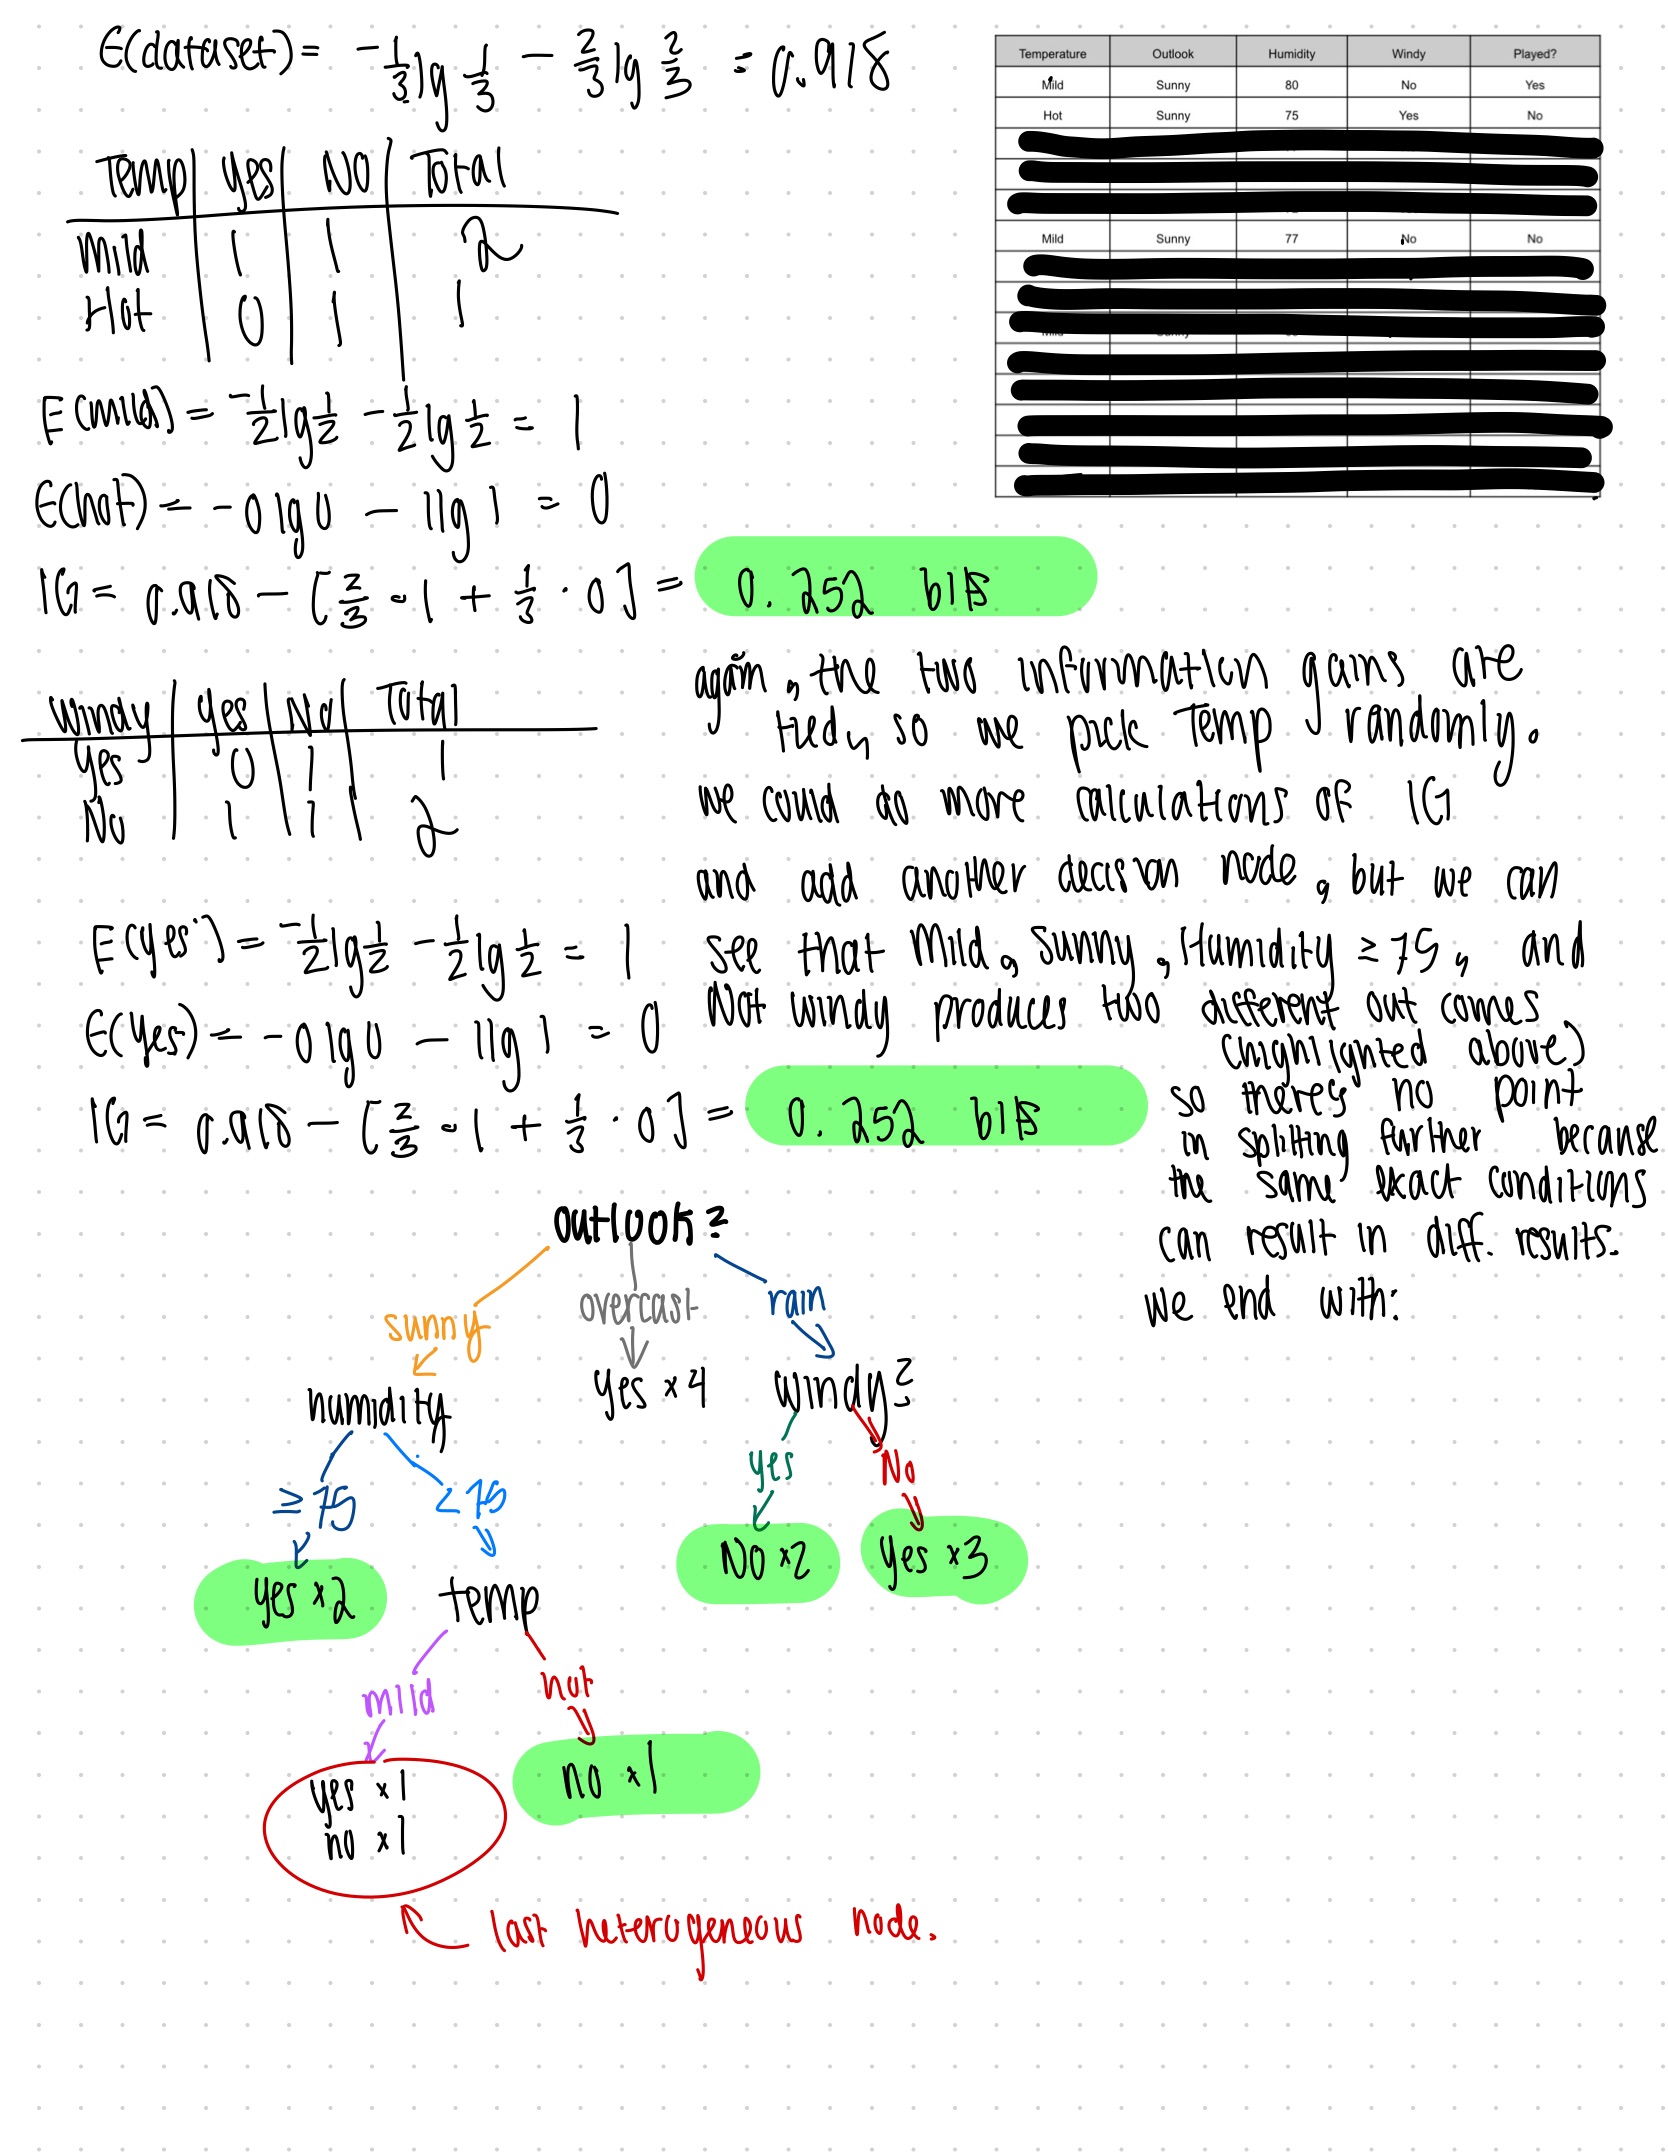 E(dataset) = -1/3 lg 1/3 - 2/3 lg 2/3 = 0.918
Temperature Outlook Humidity Windy Played?
Mild Sunny 80 No Yes
Hot Sunny 75 Yes No
Mild Sunny 77 No No
Temp Yes No Total
Mild 1 1 2
Hot 0 1 1
E(mild) = -1/2 lg 1/2 - 1/2 lg 1/2 = 1
E(hot) = -0 lg 0 - 1 lg 1 = 0
IG = 0.918 - [2/3 · 1 + 1/3 · 0] = 0.252 bits
Windy Yes No Total
Yes 0 1 1
No 1 1 2
E(yes) = -1/2 lg 1/2 - 1/2 lg 1/2 = 1
E(yes) = -0 lg 0 - 1 lg 1 = 0
IG = 0.918 - [2/3 · 1 + 1/3 · 0] = 0.252 bits
again, the two information gains are
tied, so we pick Temp randomly.
we could do more calculations of IG
and add another decision node, but we can
see that Mild, Sunny, Humidity ≥ 75, and
Not windy produces two different outcomes
(highlighted above)
so there's no point
in splitting further because
the same exact conditions
can result in diff. results.
we end with:
outlook?
sunny overcast rain
humidity yes × 4 windy?
≥ 75 < 75 yes No
yes × 2 temp No × 2 yes × 3
mild hot
yes × 1
no × 1
no × 1
last heterogeneous node.